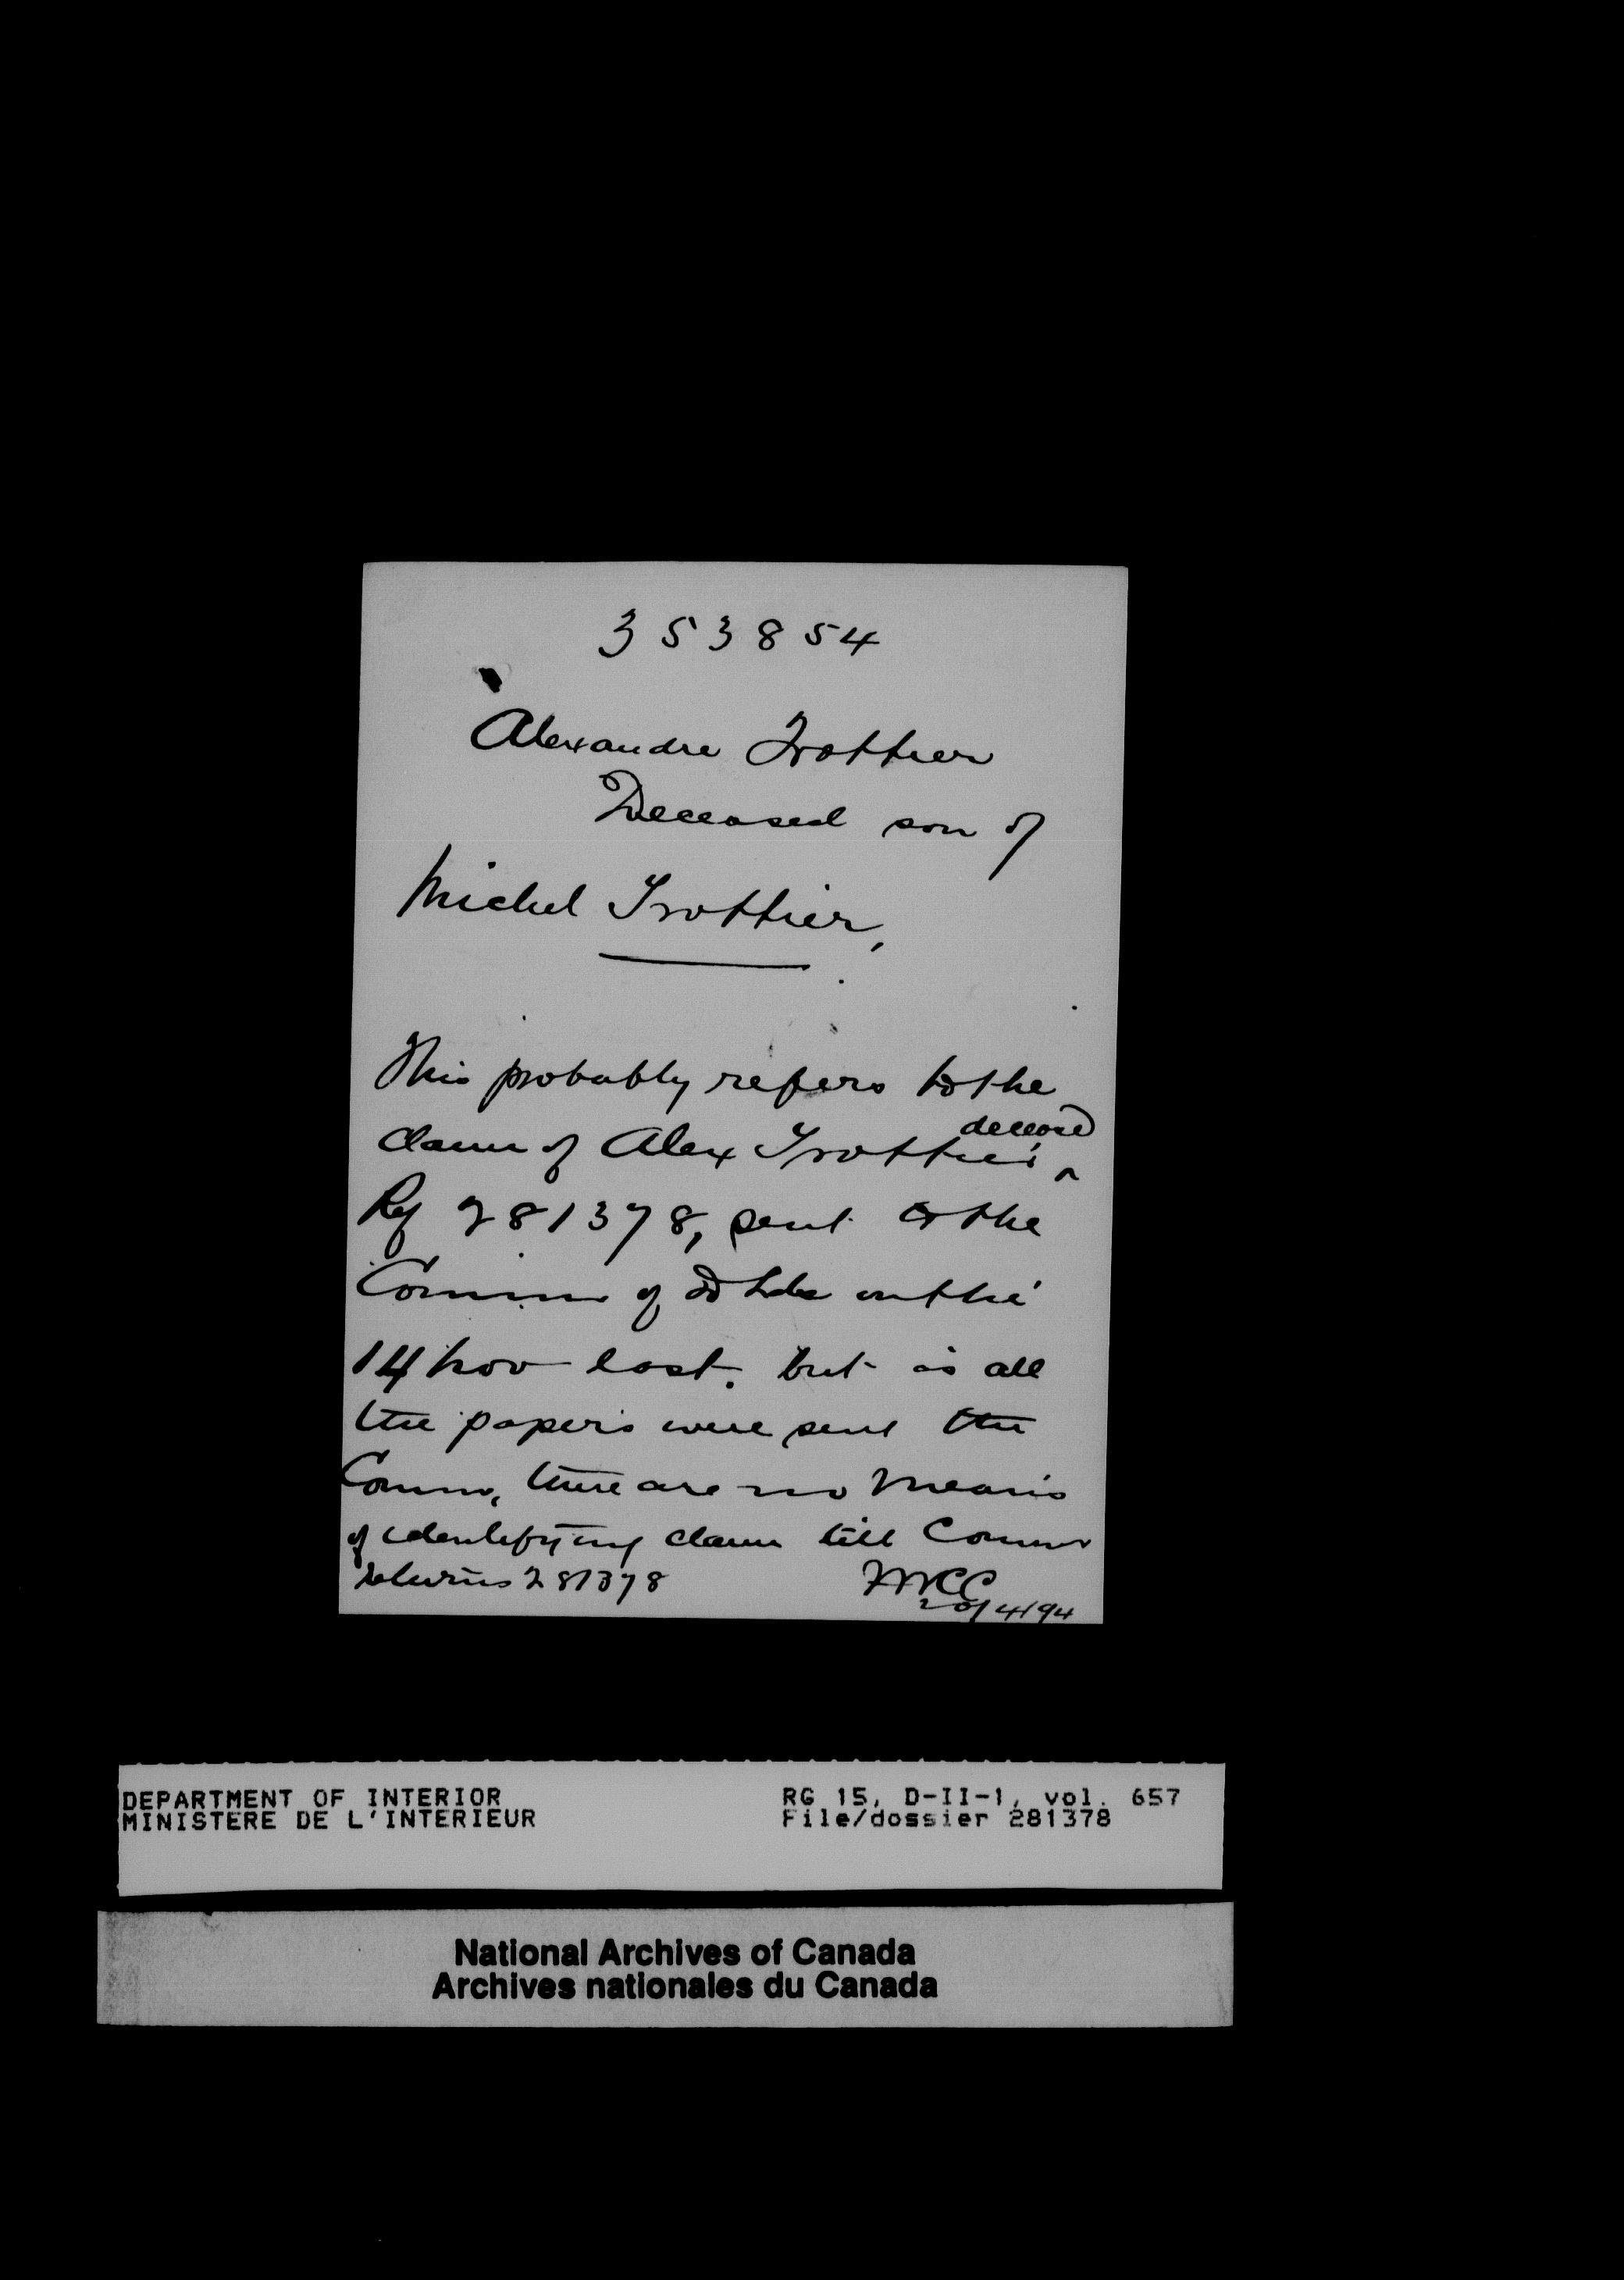 353854
Alexandre Trottier
Deceased son of
Michel Trottier,
This probably refers to the
deceased
claim of Alex Trottier ^
Ref 281378, sent to the
Commr of D Lds on the
14 Nov last. but as all
the papers were sent the
Commr, there are no means
of identifying claim till Commr
returns 281378
20/4/94
DEPARTMENT OF INTERIOR
MINISTERE DE L'INTERIEUR
RG 15, D-II-1, vol. 657
File/dossier 281378
National Archives of Canada
Archives nationales du Canada